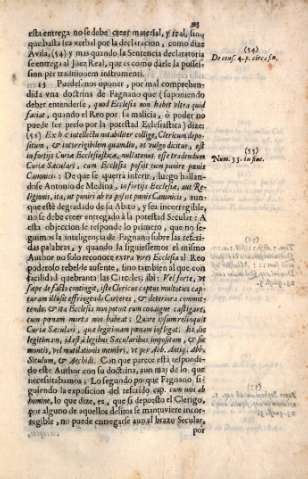 esta entrega no se debe creer material, y real, sino
que basta sea verbal por la declaracion, como dize
Avila, (54) y mas quando la Sentencia declaratoria
se entrega al Juez Real, que es como darle la posses-
sion per traditionem instrumenti.
15 Puedes nos oponer, por mal comprehen-
dida vna doctrina de Fagnano que (suponiendo
deber entenderse, quod Ecclesia non habet vltra quid
faciat, quando el Reo por su malicia, ò poder no
puede ser preso por la potestad Eclesiastica) dize:
(55) Ex his intellectu notabiliter collige, Clericum depo-
situm, & incorrigibilem quandiu, vt vulgo dicitur, est
in fortijs Curiæ Ecclesiasticæ, nullatenus esse tradendum
Curiæ Sæculari, cum Ecclesia possit eum punire pœnis
Canonicis: De que se querrà inferir, luego hallan-
dose Antonio de Medina, in fortijs Ecclesiæ, aut Re-
ligionis, ita, ut puniri ab ea possit pœnis Canonicis, aun-
que estè degradado de su Abito, y sea incorregible,
no se debe entregar à la potestad Secular: A
esta objeccion se responde lo primero, que no se-
guimos la inteligencia de Fagnano sobre las referi-
das palabras, y quando la siguiessemos el mismo
Author no solo reconoce extra vires Ecclesiæ al Reo
poderoso rebelde ausente, sino tambien al que con
facilidad quebranta las Carceles, ibi: Vel forte, vt
sæpe de facto contingit, iste Clericus captus multoties cap-
turam illusit effringendo Carceres, & deteriora commit-
tendo: & ita Ecclesia non potest eum condigne castigare,
cum pœnam mortis non habeat: Quare ipsum relinquit
Curiæ Sæculari, qua legitimam pœnam infligat: ita, vt
legitimam, id est à legibus Sæcularibus impositam, & sic
mortis, vel mutilationis membri, vt per Abb. Antiq. Abb.
Siculum, & Decihdi. Con que parece està respondi-
do este Author con su doctrina, aun mas de lo que
necessitabamos: Lo segundo porque Fagnano si-
guiendo la exposicion del referido cap. cum non ab
homine, lo que dize, es, que si depuesto el Clerigo,
por alguno de aquellos delitos se mantuviere incor-
regible, no puede entregarse aun al brazo Secular,
por
(54)
De cens. 4. p. circa fin.
(55)
Num. 35. in fine.